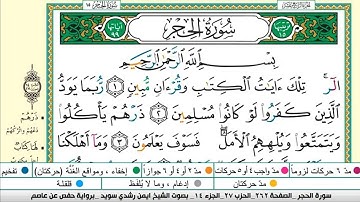 سُورَةُ الحِجْرِ
بِسْمِ اللَّهِ الرَّحْمَٰنِ الرَّحِيمِ
الٓر ۚ تِلْكَ ءَايَٰتُ ٱلْكِتَٰبِ وَقُرْءَانٍ مُّبِينٍ ١ رُّبَمَا يَوَدُّ
ٱلَّذِينَ كَفَرُوا۟ لَوْ كَانُوا۟ مُسْلِمِينَ ٢ ذَرْهُمْ يَأْكُلُوا۟
وَيَتَمَتَّعُوا۟ وَيُلْهِهِمُ ٱلْأَمَلُ ۖ فَسَوْفَ يَعْلَمُونَ ٣ وَمَآ أَهْلَكْنَا
ذَرْهُمْ
مدّ ٦ حركات لزوماً مدّ واجب ٤ أو ٥ حركات مدّ ٢ أو ٤ أو ٦ جوازاً إخفاء، ومواقع الغُنَّة (حركتان) تفخيم
مدّ حركتان إدغام، وما لا يُلفَظ قلقلة
سورة الحجر _الصفحة ٢٦٢ _الحزب ٢٧_ الجزء ١٤_ بصوت الشيخ أيمن رشدي سويد _برواية حفص عن عاصم